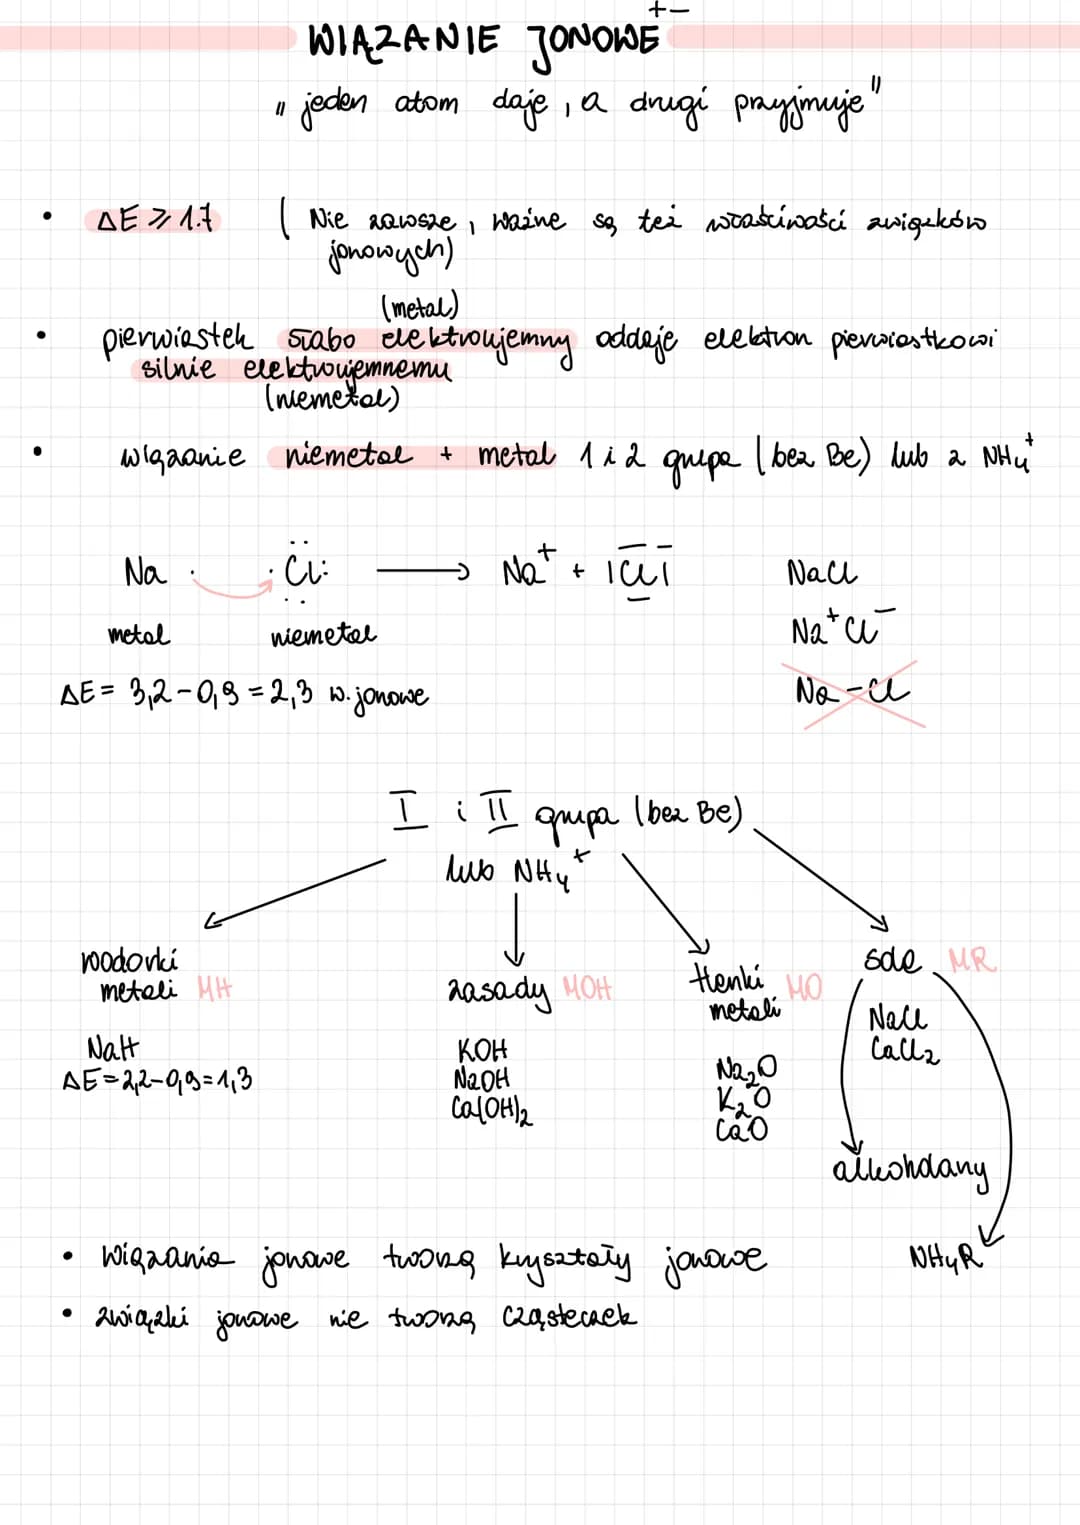 +−
WIĄZANIE JONOWE
"jeden atom daje, a drugi przyjmuje"
• ΔE ⩾ 1.7 ( Nie zawsze, ważne są też właściwości związków
jonowych)
(metal)
• pierwiastek słabo elektroujemny oddaje elektron pierwiastkowi
silnie elektroujemnemu
(niemetal)
• wiązanie niemetal + metal 1 i 2 grupa (bez Be) lub z NH₄⁺
Na · · Cl: ⟶ Na⁺ + |Cl|⁻ NaCl
metal niemetal Na⁺Cl⁻
ΔE = 3,2-0,9 = 2,3 w. jonowe Na-Cl
I i II grupa (bez Be)
lub NH₄⁺
wodorki
metali MH
NaH
ΔE=2,2-0,9=1,3
zasady MOH
KOH
NaOH
Ca(OH)₂
tlenki
metali MO
Na₂O
K₂O
CaO
sole MR
NaCl
CaCl₂
alkoholany
NH₄R
• Wiązania jonowe tworzą kryształy jonowe
• związki jonowe nie tworzą cząsteczek